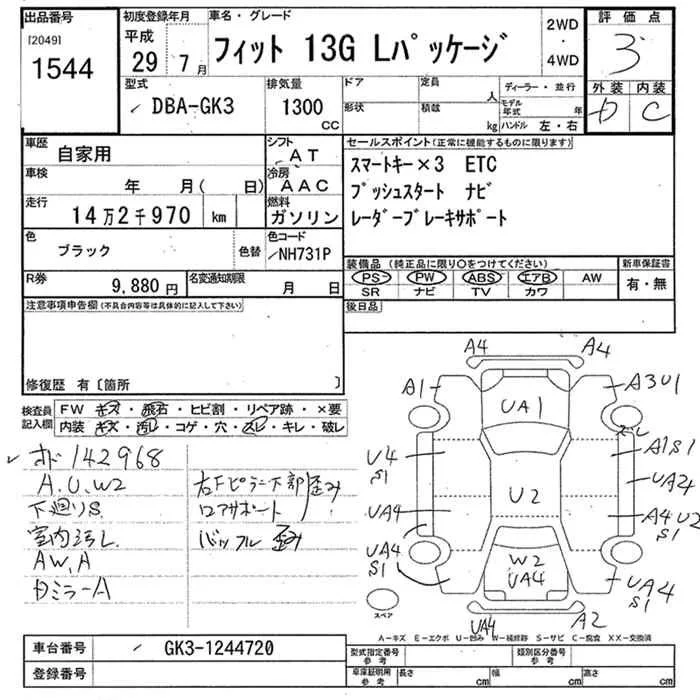 出品番号 初度登録年月 車名・グレード 2WD・4WD 評価点
[2049] 平成
1544 29 7月 フィット 13G Lパッケージ 3
型式 排気量 ドア 定員 人 ディーラー・並行 外装 内装
DBA-GK3 1300 CC 形状 積載 kg モデル年式 年 D C
ハンドル 左・右
車歴 自家用 シフト AT セールスポイント(正常に機能するものに限ります)
車検 年 月( 日) 冷房 AAC スマートキー×3 ETC
走行 14万2千970 km 燃料 ガソリン プッシュスタート ナビ
レーダーブレーキサポート
色 ブラック 色替 色コード NH731P
装備品 (純正品に限り○をつけてください) 新車保証書
R券 9,880円 名変通知期限 月 日 PS PW ABS エアB AW 有・無
SR ナビ TV カワ
注意事項申告欄(不具合内容等は具体的に記入して下さい) 後日品
修復歴 有〔箇所 〕
検査員記入欄 FW キズ・飛石・ヒビ割・リペア跡・×要
内装 キズ・汚レ・コゲ・穴・スレ・キレ・破レ
オド142968
A.U.W2 右Fピラー下部歪み
下廻りS ロアサポート
室内汚レ バックル歪み
AW.A
DミラーA
A4 A4
A1 A3U1
UA1
スレ
U4 S1 A1S1
U2 UA2
UA4 A4 U2 S1
UA4 S1 W2 UA4 UA4 S1
スペア UA4 A2
A-キズ E-エクボ U-凹み W-補修跡 S-サビ C-腐食 XX-交換済
車台番号 GK3-1244720 型式指定番号 参考 類別区分番号 参考
登録番号 車庫証明用 参考 長さ cm 幅 cm 高さ cm